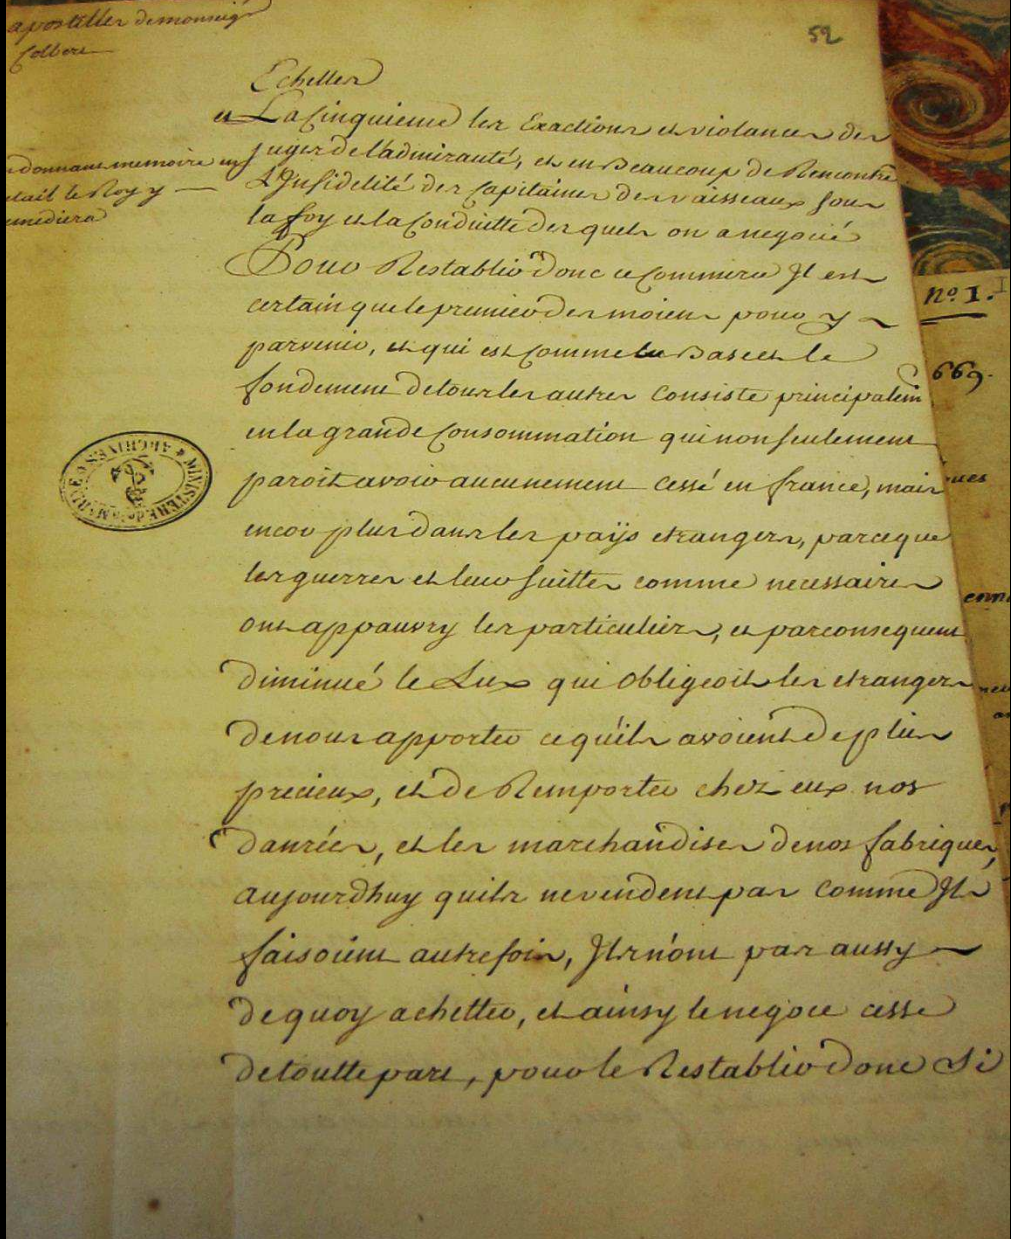 apostilles de monseigr
Colbert
52
Echelles
et La Cinquieme les Exactions et violances des
juges de l'admirauté, et en Beaucoup de Rencontre
donnant memoire en
L'Jnfidelité des Capitaines des vaisseaux sous
detail le Roy y
remediera
la foy et la Conduitte des quels on a negocié
Pour Restablir donc ce Commerce Jl est
certain que le premier des moiens pour y
parvenir, et qui est Comme la Base et le
fondement de tous les autres Consiste principalem
en la grande Consommation qui non seulement
paroit avoir aucunement cessé en france, mais
encor plus dans les païs etrangers, parceque
les guerres et leur suittes comme necessaires
ont appauvry les particuliers, et parconsequent
diminué le Lux qui obligeoit les etrangers
de nous apporter ce qu'ils avoient de plus
precieux, et de Remporter chez eux nos
danrées, et les marchandises de nos fabriques,
aujourdhuy quils ne vendent pas comme Jls
faisoient autrefois, Jls n'ont pas aussy
de quoy achetter, et ainsy le negoce cesse
de toutte part, pour le Restablir donc Si
ARCHIVES
MINISTERE de la MARINE
no. 1.
669.
ques